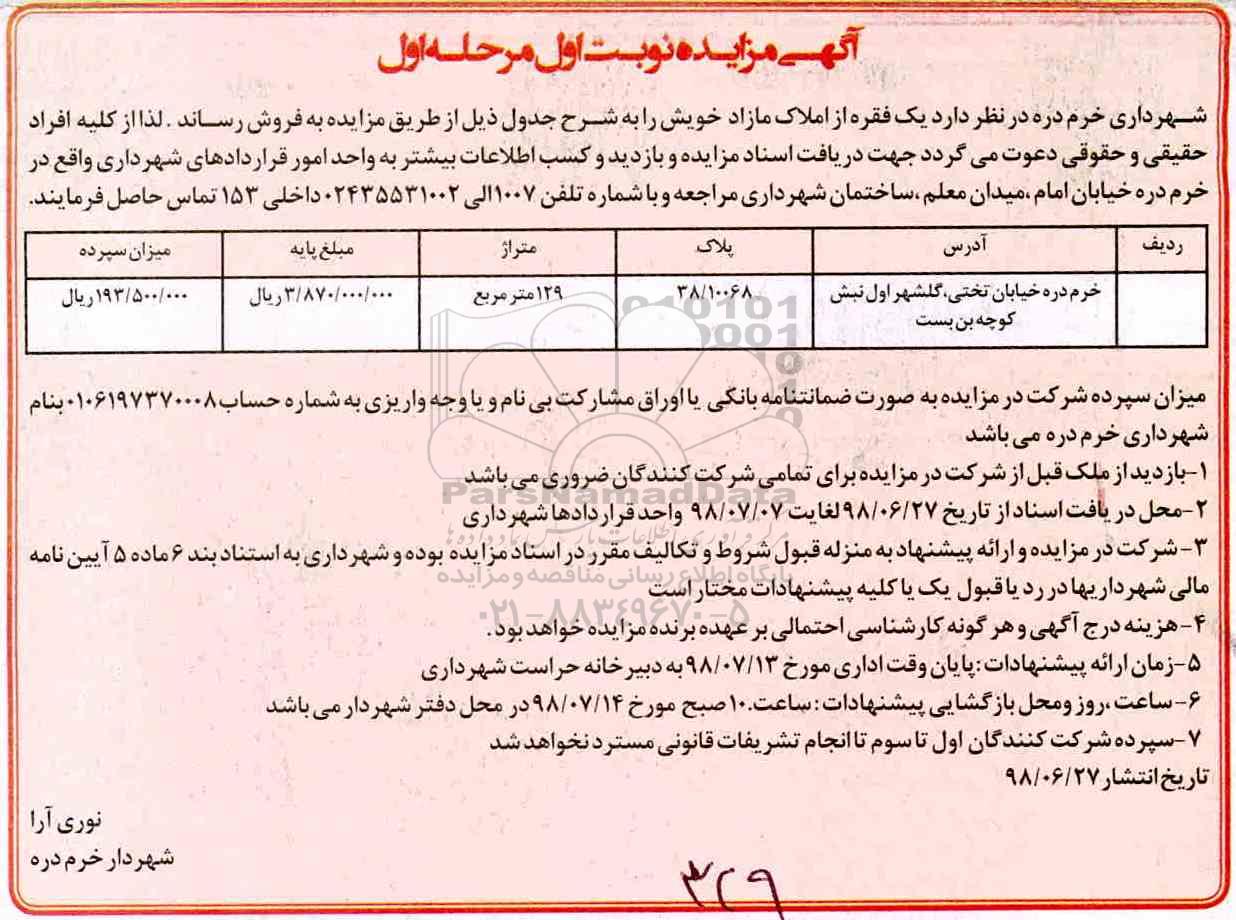 آگهی مزایده نوبت اول مرحله اول
شهرداری خرم دره در نظر دارد یک فقره از املاک مازاد خویش را به شرح جدول ذیل از طریق مزایده به فروش رساند . لذا از کلیه افراد
حقیقی و حقوقی دعوت می گردد جهت دریافت اسناد مزایده و بازدید و کسب اطلاعات بیشتر به واحد امور قراردادهای شهرداری واقع در
خرم دره خیابان امام ،میدان معلم ،ساختمان شهرداری مراجعه و با شماره تلفن ۱۰۰۷الی ۰۲۴۳۵۵۳۱۰۰۲ داخلی ۱۵۳ تماس حاصل فرمایند.
ردیف آدرس پلاک متراژ مبلغ پایه میزان سپرده
خرم دره خیابان تختی،گلشهر اول نبش ۳۸/۱۰۰۶۸ ۱۲۹متر مربع ۳/۸۷۰/۰۰۰/۰۰۰ ریال ۱۹۳/۵۰۰/۰۰۰ریال
کوچه بن بست
میزان سپرده شرکت در مزایده به صورت ضمانتنامه بانکی یا اوراق مشارکت بی نام و یا وجه واریزی به شماره حساب ۰۱۰۶۱۹۷۳۷۰۰۰۸ بنام
شهرداری خرم دره می باشد
۱-بازدید از ملک قبل از شرکت در مزایده برای تمامی شرکت کنندگان ضروری می باشد
۲-محل دریافت اسناد از تاریخ ۹۸/۰۶/۲۷ لغایت ۹۸/۰۷/۰۷ واحد قراردادها شهرداری
۳-شرکت در مزایده و ارائه پیشنهاد به منزله قبول شروط و تکالیف مقرر در اسناد مزایده بوده و شهرداری به استناد بند ۶ ماده ۵ آیین نامه
مالی شهرداریها در رد یا قبول یک یا کلیه پیشنهادات مختار است
۴-هزینه درج آگهی و هر گونه کارشناسی احتمالی بر عهده برنده مزایده خواهد بود.
۵-زمان ارائه پیشنهادات :پایان وقت اداری مورخ ۹۸/۰۷/۱۳ به دبیرخانه حراست شهرداری
۶-ساعت ،روز ومحل بازگشایی پیشنهادات : ساعت.۱۰ صبح مورخ ۹۸/۰۷/۱۴ در محل دفتر شهردار می باشد
۷-سپرده شرکت کنندگان اول تا سوم تا انجام تشریفات قانونی مسترد نخواهد شد
تاریخ انتشار ۹۸/۰۶/۲۷
نوری آرا
شهردار خرم دره
۳۲۹
ParsNamadData
پایگاه اطلاع رسانی مناقصه و مزایده
۰۲۱-۸۸۳۴۹۶۷۰-۵